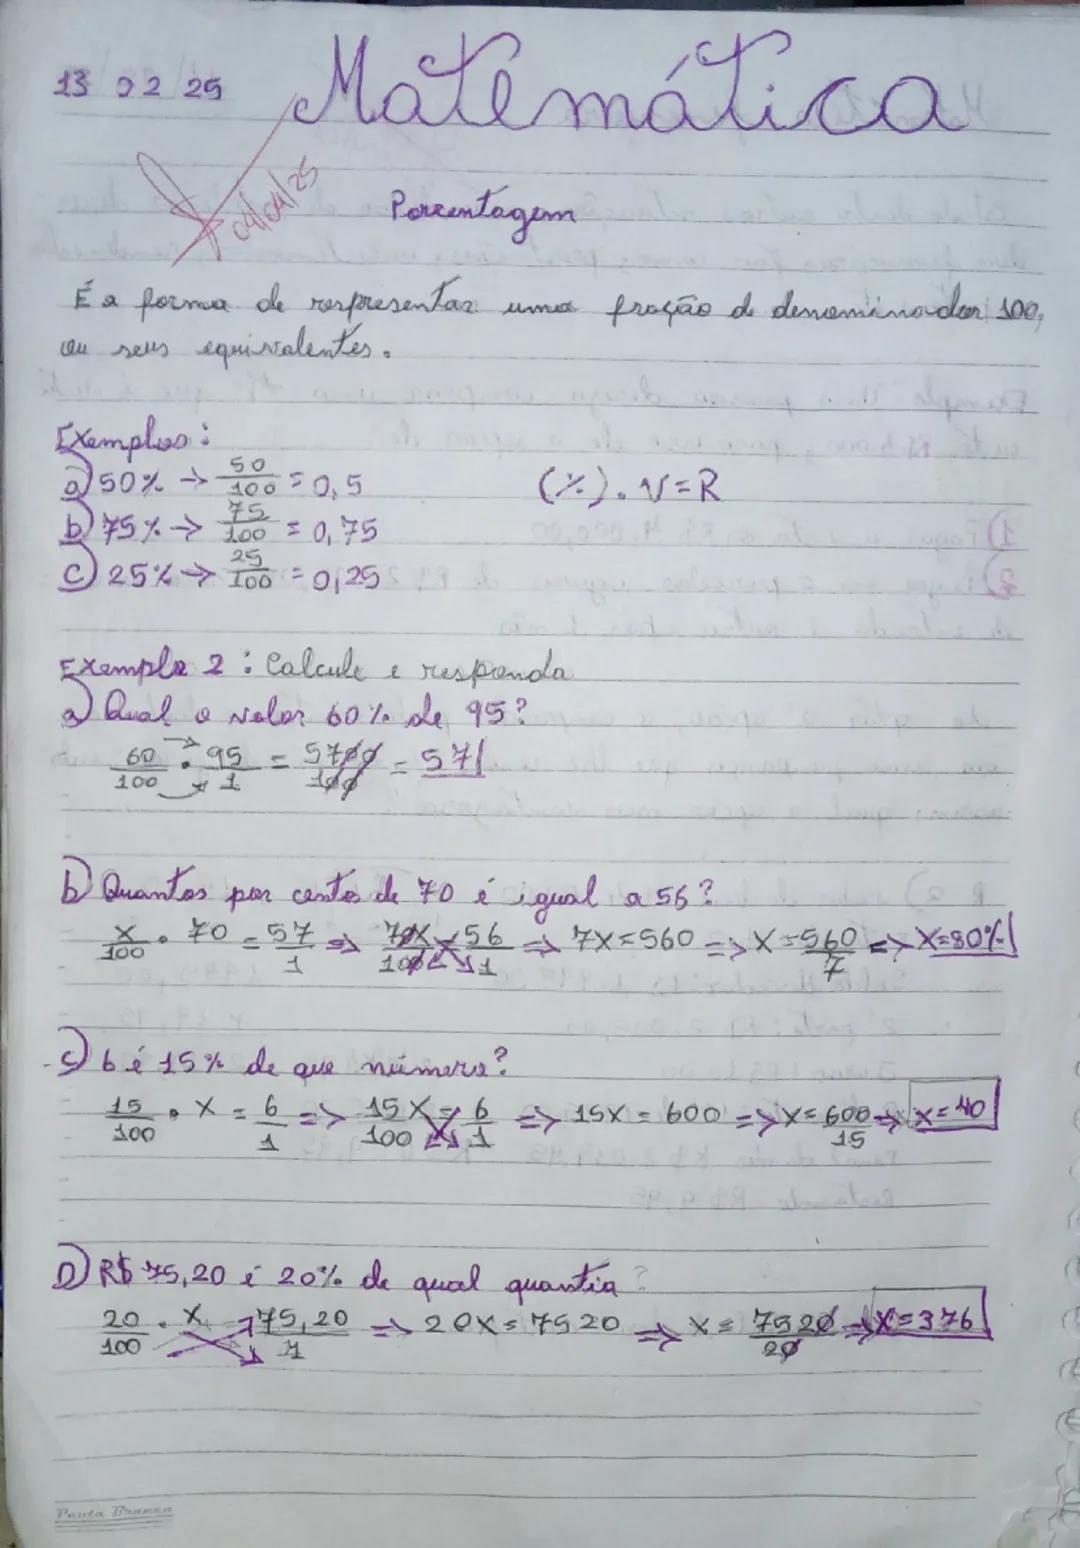 13 02 25 Matemática
04/04/25
Porcentagem
É a forma de respresentar uma fração de denominador 100,
ou seus equivalentes.
Exemplos:
a) 50% → 50/100 = 0,5 (%). V = R
b) 75% → 75/100 = 0,75
c) 25% → 25/100 = 0,25
Exemplo 2: Calcule e responda
a) Qual o valor 60% de 95?
60/100 . 95/1 = 5700/100 = 57
b) Quantos por centos de 70 é igual a 56?
x/100 . 70 = 57/1 => 70x/100 = 56/1 => 7x = 560 => x = 560/7 => x = 80%
c) 6 é 15% de que número?
15/100 . x = 6/1 => 15x/100 = 6/1 => 15x = 600 => x = 600/15 => x = 40
D) R$ 75,20 é 20% de qual quantia?
20/100 . x = 75,20/1 => 20x = 7520 => x = 7520/20 => x = 376
Ponta Branca